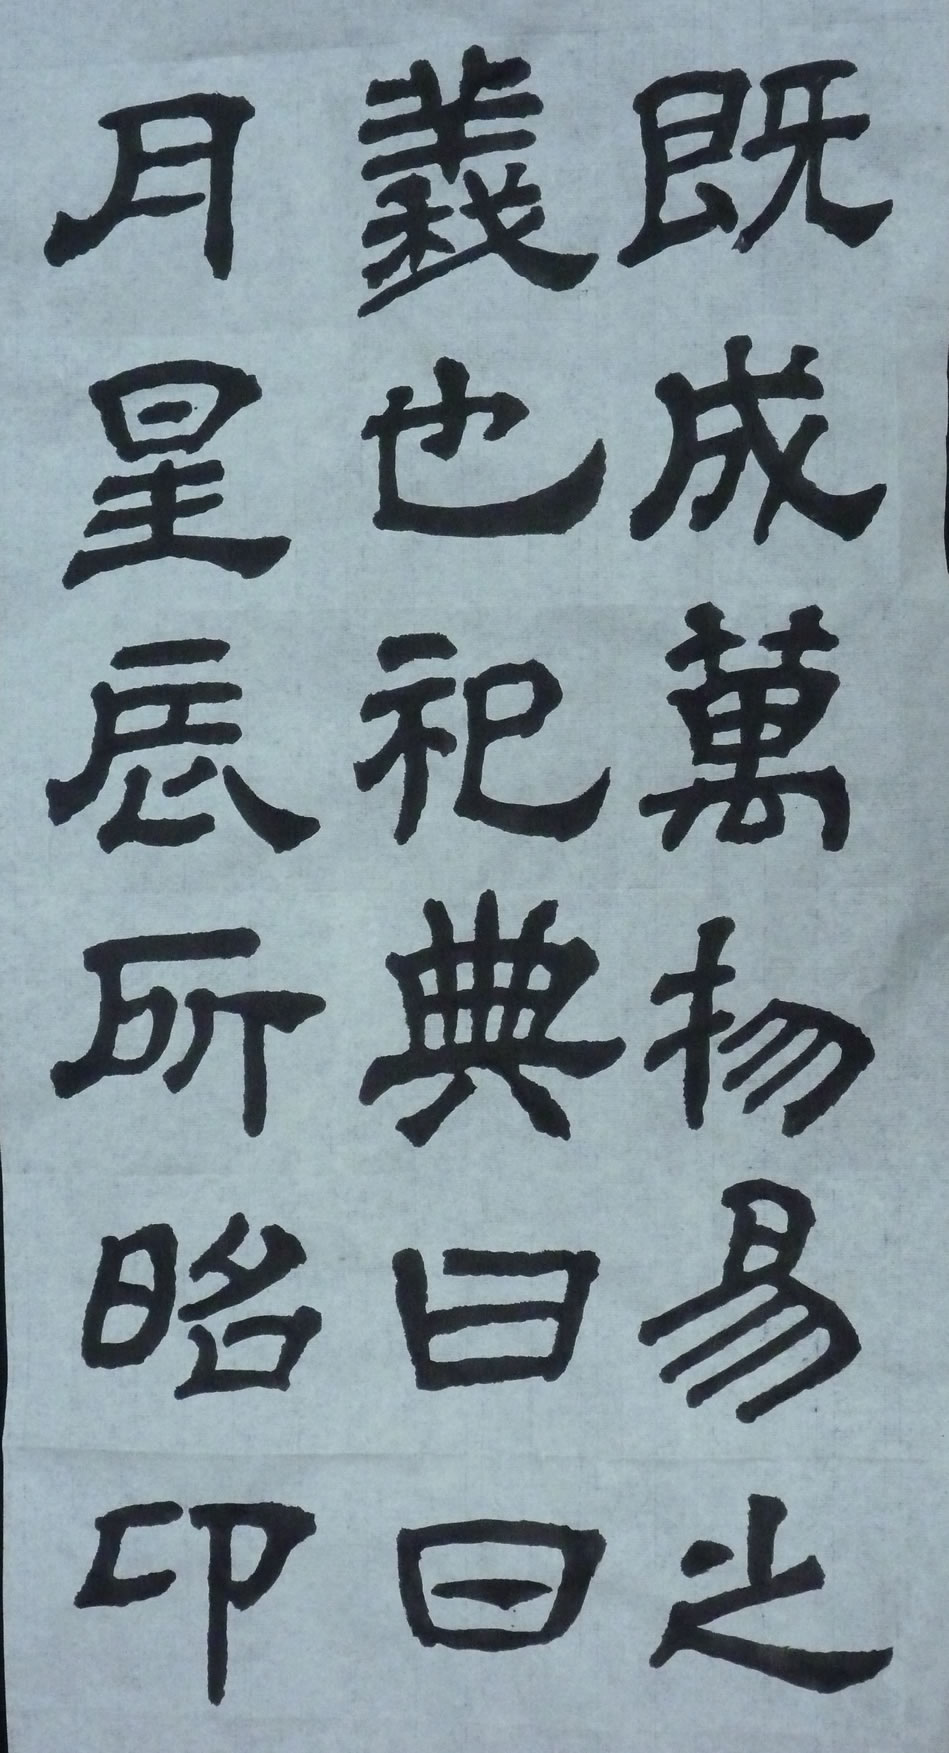 既成萬物易之
義也祀典曰日
月星辰所昭卬